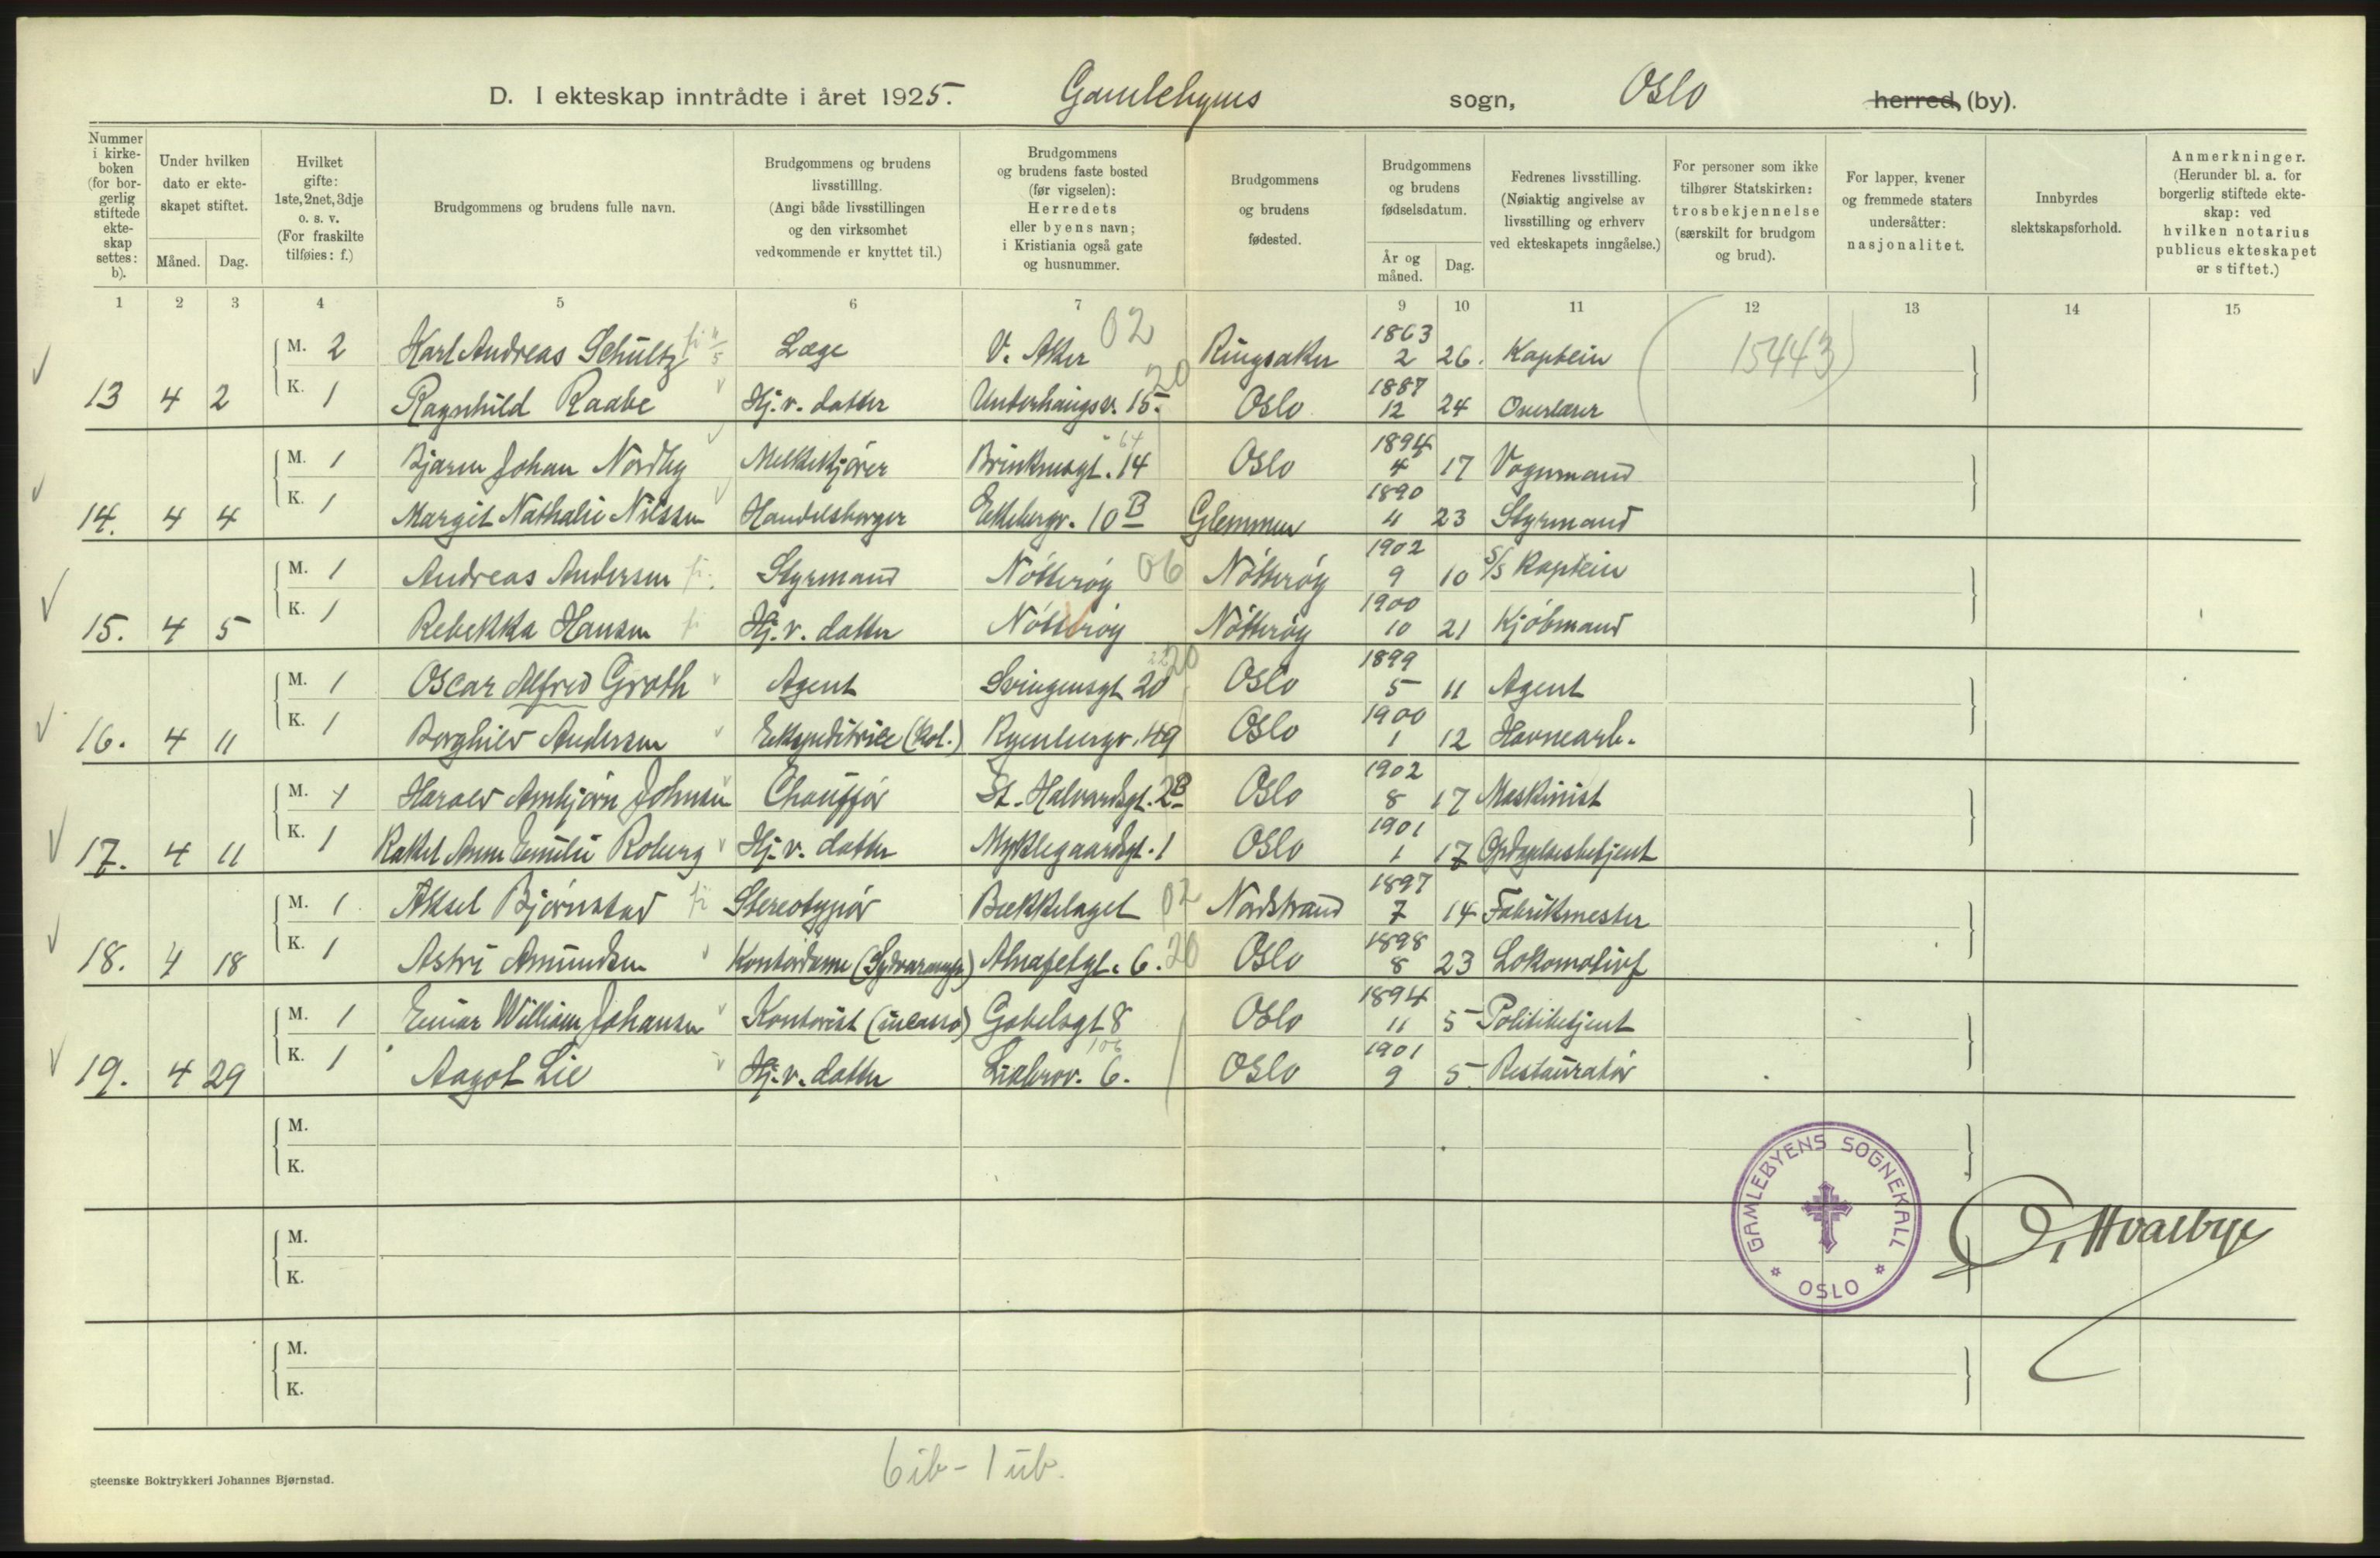 D. I ekteskap inntrådte i året 1925. Gamlebyens sogn, Oslo herred, (by).
Nummer i kirkeboken (for borgerlig stiftede ekteskap settes: b).
Under hvilken dato er ekteskapet stiftet.
Måned.
Dag.
Hvilket gifte: 1ste, 2net, 3dje o. s. v. (For fraskilte tilføies: f.)
Brudgommens og brudens fulle navn.
Brudgommens og brudens livsstilling. (Angi både livsstillingen og den virksomhet vedkommende er knyttet til.)
Brudgommens og brudens faste bosted (før vigselen): Herredets eller byens navn; i Kristiania også gate og husnummer.
Brudgommens og brudens fødested.
Brudgommens og brudens fødselsdatum.
År og måned.
Dag.
Fedrenes livsstilling. (Nøiaktig angivelse av livsstilling og erhverv ved ekteskapets inngåelse.)
For personer som ikke tilhører Statskirken: trosbekjennelse (særskilt for brudgom og brud).
For lapper, kvener og fremmede staters undersåtter: nasjonalitet.
Innbyrdes slektskapsforhold.
Anmerkninger. (Herunder bl. a. for borgerlig stiftede ekteskap: ved hvilken notarius publicus ekteskapet er stiftet.)
1 2 3 4 5 6 7 9 10 11 12 13 14 15
M. 2 Karl Andreas Schultz Læge V. Aker 02 Ringsaker 1863 2 26. Kaptein (15443)
13 4 2 K. 1 Ragnhild Raabe Hj. v. datter Underhaugsv. 15. 20 Oslo 1887 12 24 Overlærer
M. 1 Bjarne Johan Nordby Melkekjører Brinkensgt. 14 64 Oslo 1894 4 17 Vognmand
14. 4 4 K. 1 Margit Nathalie Nilssen Handelsborger Ekebergv. 10 B Glemmen 1890 4 23 Styrmand
M. 1 Andreas Andersen Styrmand Nøtterøy 06 Nøtterøy 1902 9 10 S/S Kaptein
15. 4 5 K. 1 Rebekka Hansen Hj. v. datter Nøtterøy Nøtterøy 1900 10 21 Kjøbmand
M. 1 Oscar Alfred Groth Agent Svingensgt 20 20 Oslo 1899 5 11 Agent
16. 4 11 K. 1 Borghild Andersen Ekspeditrice (kol.) Ryenbergv. 49 Oslo 1900 1 12 Havnearb.
M. 1 Harald Arnbjørn Johnsen Chauffør St. Halvardsgt. 2 B Oslo 1902 8 17 Maskinist
17. 4 11 K. 1 Rakel Anne Emilie Roberg Hj. v. datter Myklegaardsgt. 1 Oslo 1901 1 17 Opdagelsesbetjent
M. 1 Aksel Bjørnstad Stereotypør Bekkelaget 02 Nordstrand 1897 7 14 Fabrikmester
18. 4 18 K. 1 Astri Amundsen Kontordame (Sydvaranger) Alnafetgt. 6. 20 Oslo 1898 8 23 Lokomotivf
M. 1 Einar William Johansen Kontorist (incasso) Gabelsgt 8 Oslo 1894 11 5 Politibetjent
19. 4 29 K. 1 Aagot Lie Hj. v. datter Liabrov. 6. 106 Oslo 1901 9 5 Restauratør
M.
K.
M.
K.
M.
K.
GAMLEBYENS SOGNEKALL
OSLO
O. Hvalbye
6 ib - 1 ub.
steenske Boktrykkeri Johannes Bjørnstad.